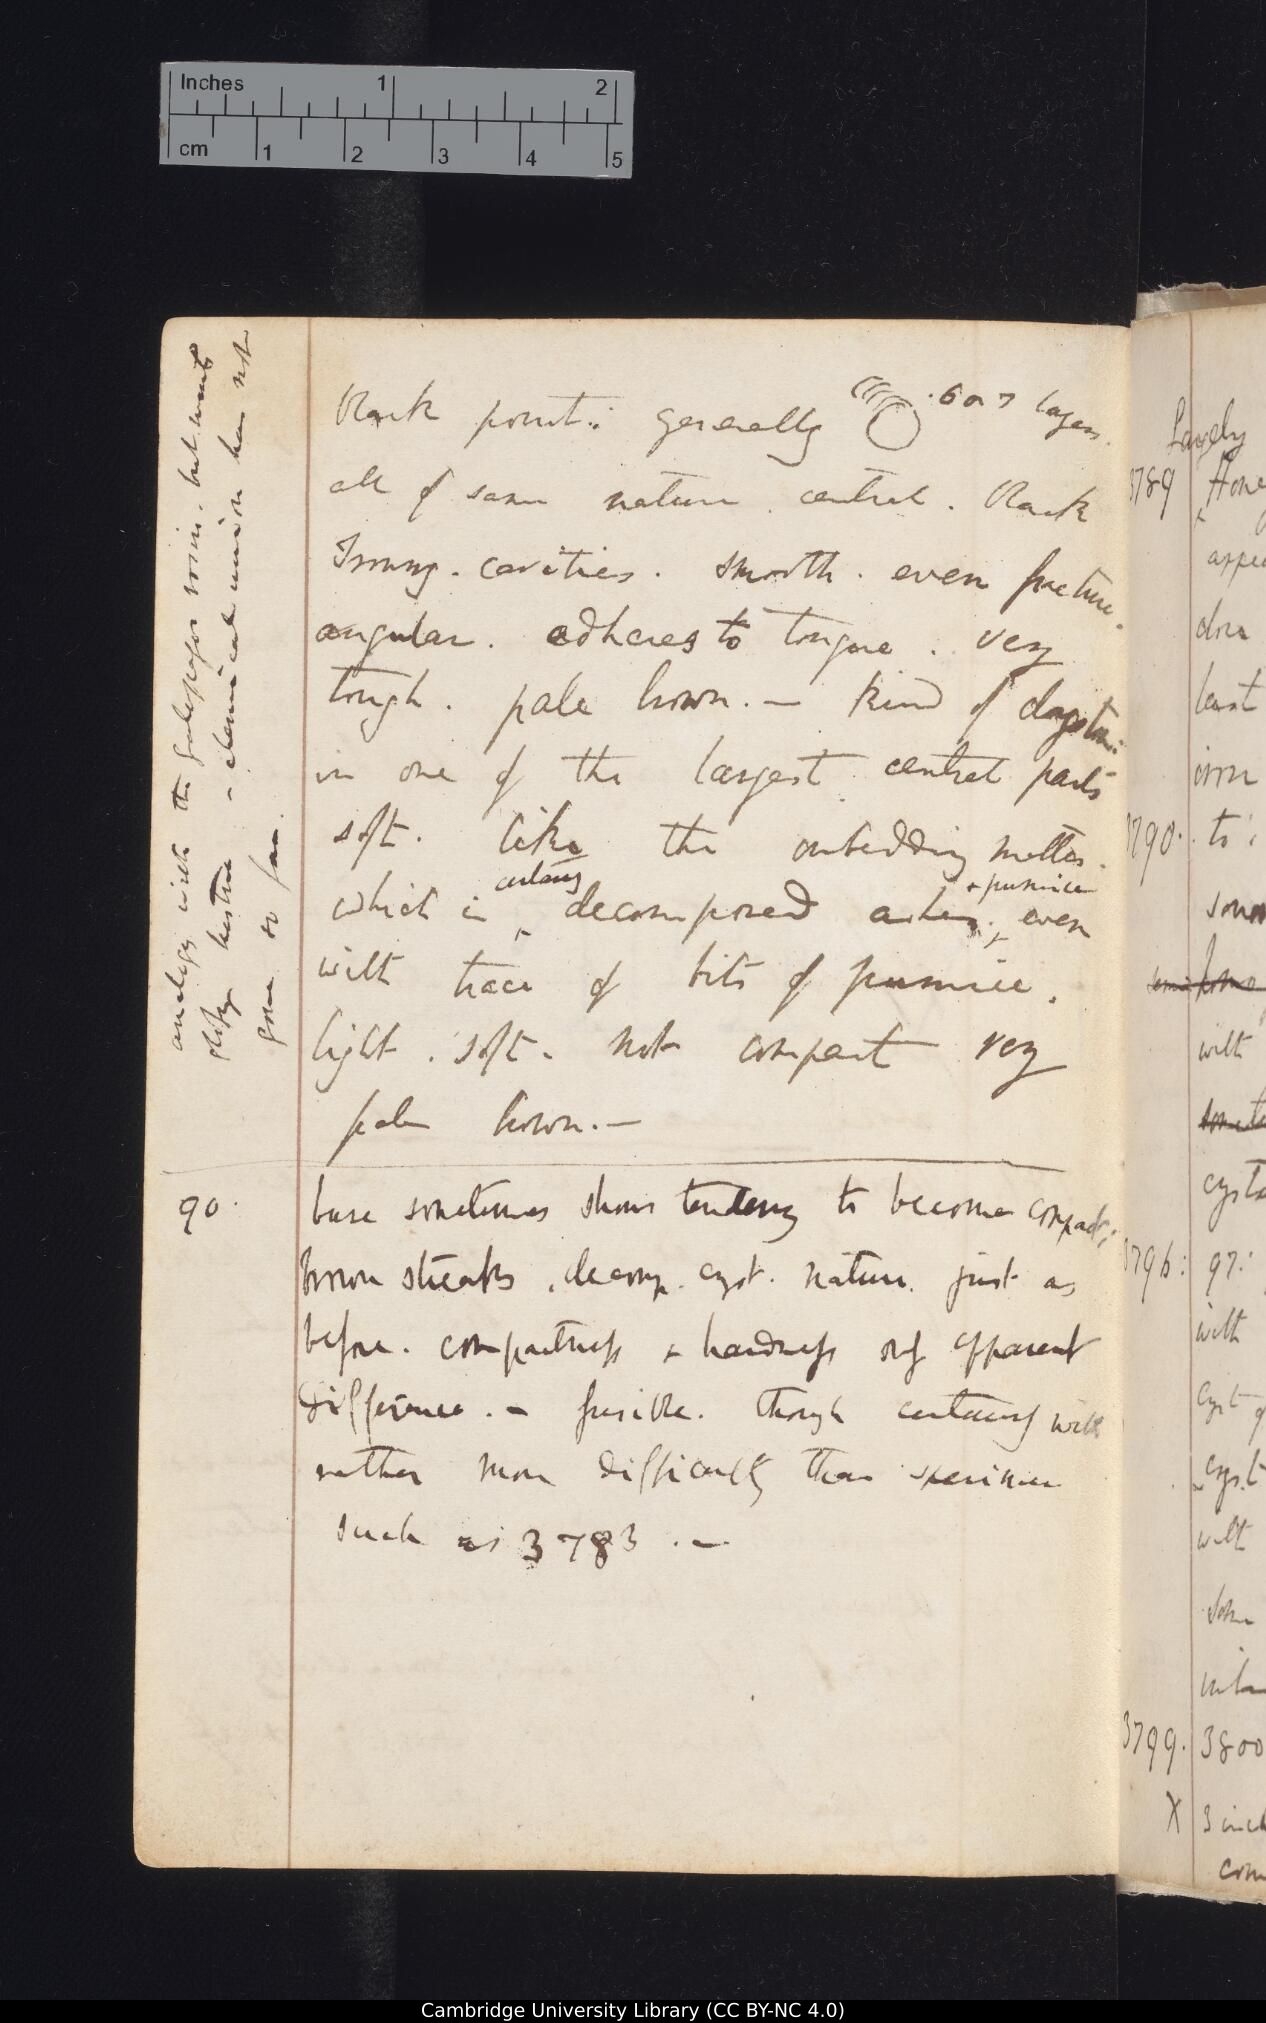 Inches 1 2
cm 1 2 3 4 5
black point: generally . 6 or 7 layers.
all of same nature . central . black
Irony . cavities . smooth . even fracture .
angular . adheres to tongue . very
tough . pale brown . — kind of claystone:
in one of the largest central parts
soft . like the imbedding matter .
certainly + pumice
which is decomposed ashes ; even
with trace of bits of pumice .
light . soft . not compact very
pale brown . —
90 .
base sometimes shows tendency to become compact ;
brown streaks . decomp . cryst . nature . just as
before . compactness + hardness only apparent
difference . — fusible . though certainly with
rather more difficulty than specimen
such as 3783 . —
analogy with the Galapagos , but wants
glossy lustre — chemical union has not
gone so far .
Largely
3789
with
3790 . to
with
3796 : 97 :
with
cryst
3799 . 3800
X 3
Cambridge University Library (CC BY-NC 4.0)